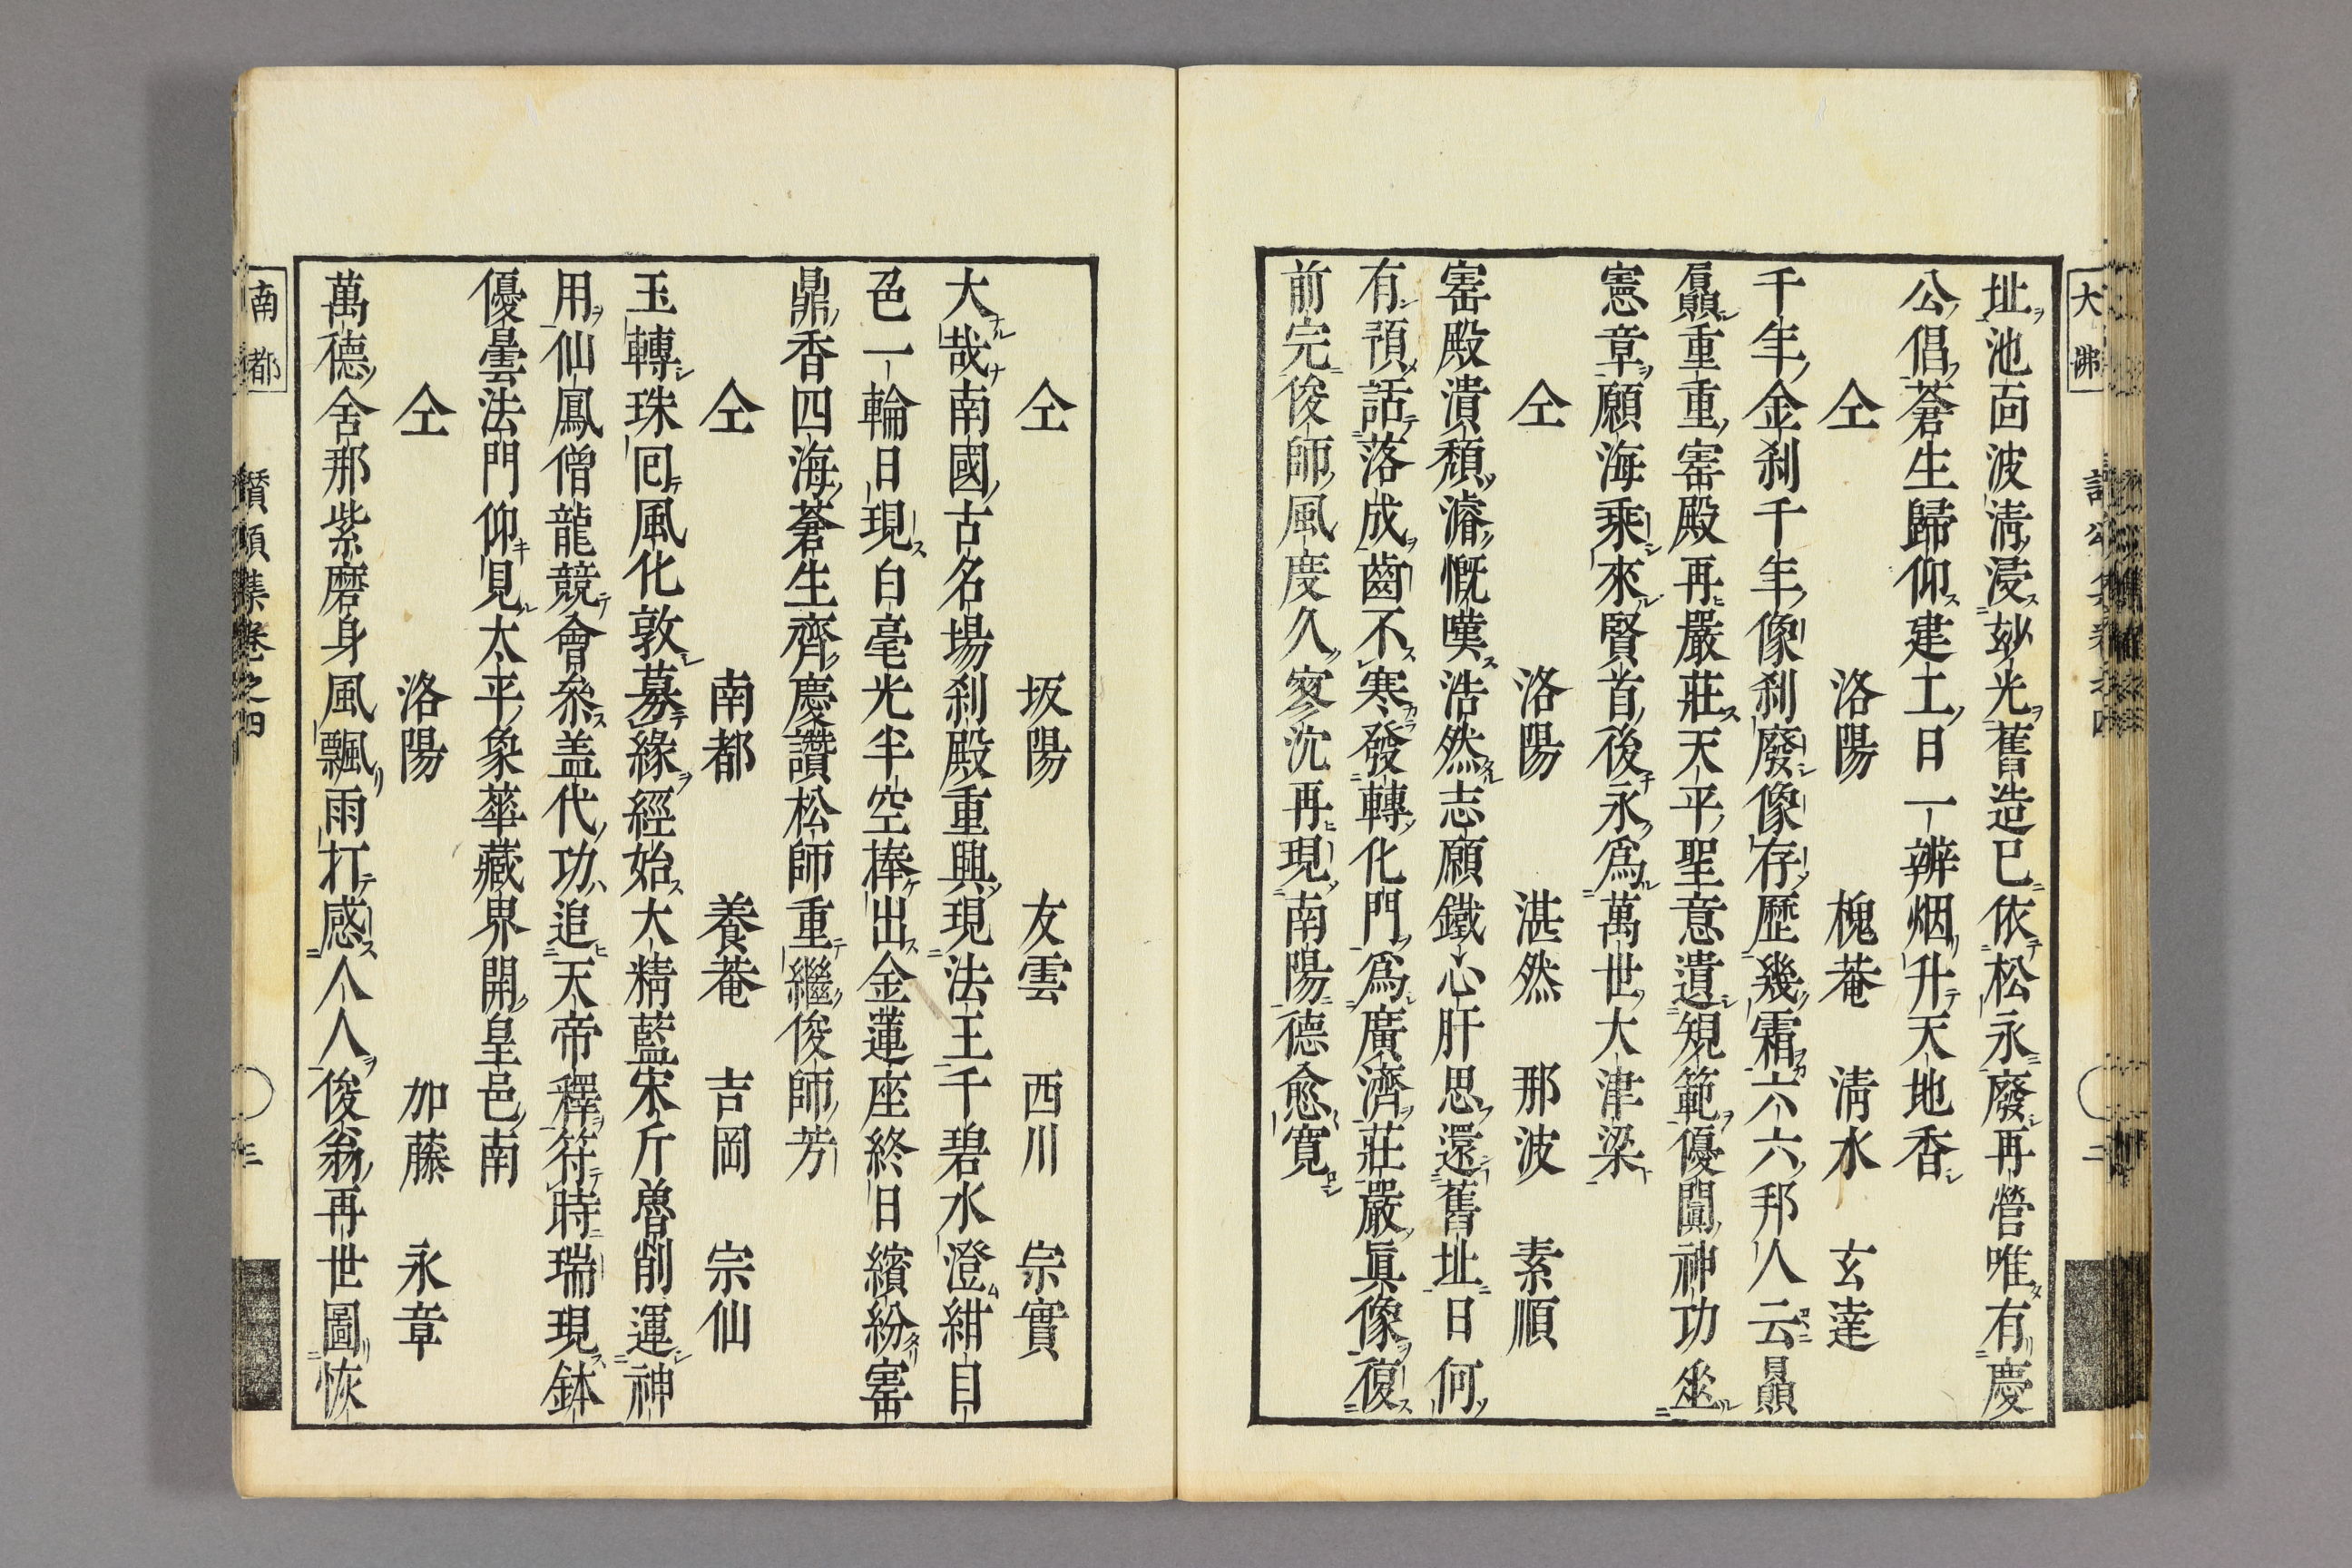 大佛
址池面波清浸玅光舊造已依松永廢再營唯有慶
公倡蒼生歸仰建土日一辨烟升天地香
仝 洛陽 槐菴 清水 玄達
千年金刹千年像刹廢像存歷幾霜六六邦人云贔
贔重重寚殿再嚴莊天平聖意遺規範優闐神功坐
憲章願海乘來賢首後永爲萬世大津梁
仝 洛陽 湛然 那波 素順
寚殿潰頽濬慨嘆浩然志願鐵心肝思還舊址日何
有預話落成齒不寒發轉化門爲廣濟莊嚴眞像復
前完俊師風度久寥沈再現南陽德愈寬
仝 坂陽 友雲 西川 宗實
大哉南國古名場刹殿重興現法王千碧水澄紺目
色一輪日現白毫光半空棒出金蓮座終日繽紛寚
鼎香四海蒼生齊慶讚松師重繼俊師芳
仝 南都 養菴 吉岡 宗仙
玉轉珠回風化敦募緣經始大精藍宋斤魯削運神
用仙鳳僧龍競會叅盖代功追天帝釋符時瑞現鉢
優曇法門仰見太平象華藏界開皇邑南
仝 洛陽 加藤 永章
萬德舍那紫磨身風飄雨打感人人俊翁再世圖恢
南都 讚頌集卷之四 三